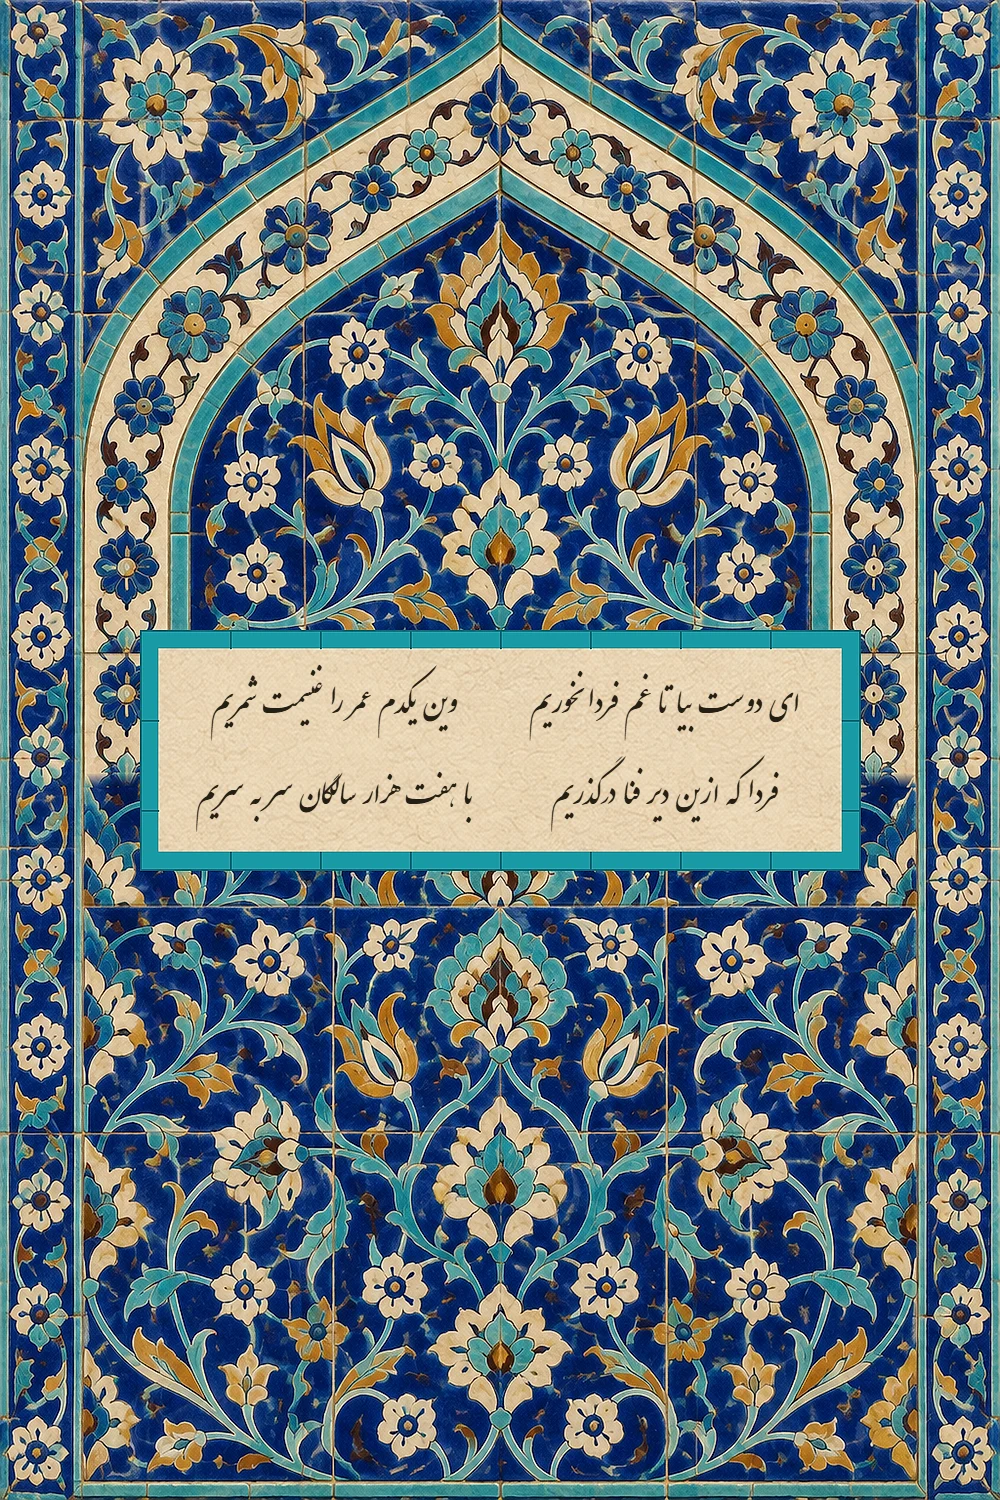 ای دوست بیا تا غم فردا نخوریم وین یکدم عمر را غنیمت شمریم
فردا که ازین دیر فنا درگذریم با هفت هزار سالگان سر به سریم